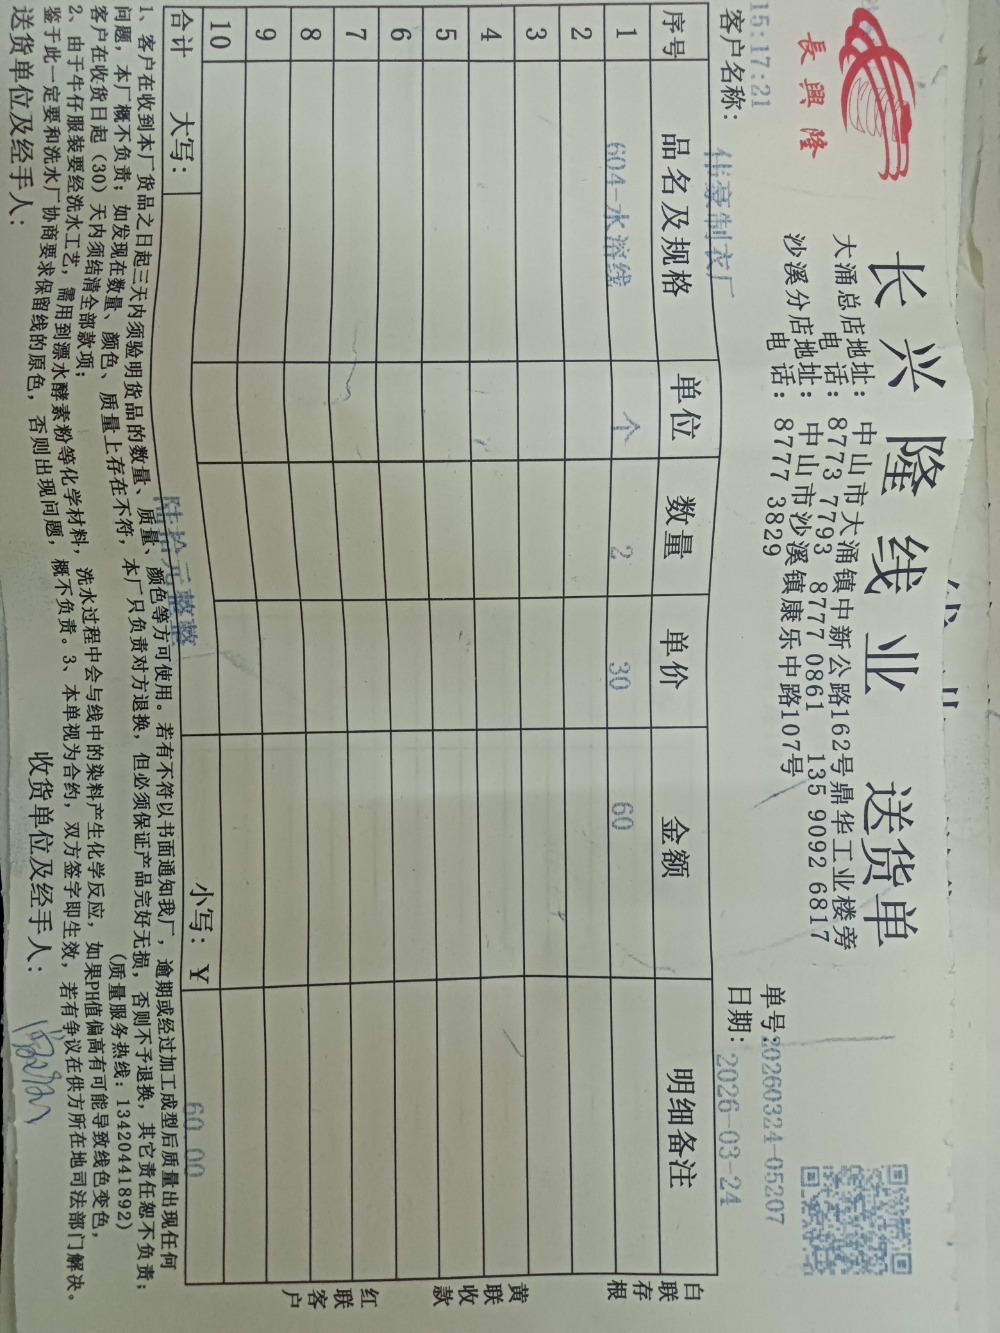 長興隆
长兴隆线业 送货单
大涌总店地址：中山市大涌镇中新公路162号鼎华工业楼旁
电话：8773 7793 8777 0861 135 9092 6817
沙溪分店地址：中山市沙溪镇康乐中路107号
电话：8777 3829
15:17:21
单号:20260324-05207
客户名称：伟豪制衣厂
日期：2026-03-24
序号 品名及规格 单位 数量 单价 金额 明细备注
1 604-水溶线 个 2 30 60
2
3
4
5
6
7
8
9
10
合计 大写：陆拾元整整 小写：¥ 60.00
白联存根
黄联收款
红联客户
1、客户在收到本厂货品之日起三天内须验明货品的数量、质量、颜色等方可使用。若有不符以书面通知我厂，逾期或经过加工成型后质量出现任何
问题，本厂概不负责；如发现在数量、颜色、质量上存在不符，本厂只负责对方退换，但必须保证产品完好无损，否则不予退换，其它责任恕不负责；
客户在收货日起（30）天内须结清全部款项； （质量服务热线：13420441892）
2、由于牛仔服装要经洗水工艺，需用到漂水酵素粉等化学材料，洗水过程中会与线中的染料产生化学反应，如果PH值偏高有可能导致线色变色，
鉴于此一定要和洗水厂协商要求保留线的原色，否则出现问题，概不负责。3、本单视为合约，双方签字即生效，若有争议在供方所在地司法部门解决。
送货单位及经手人： 收货单位及经手人：